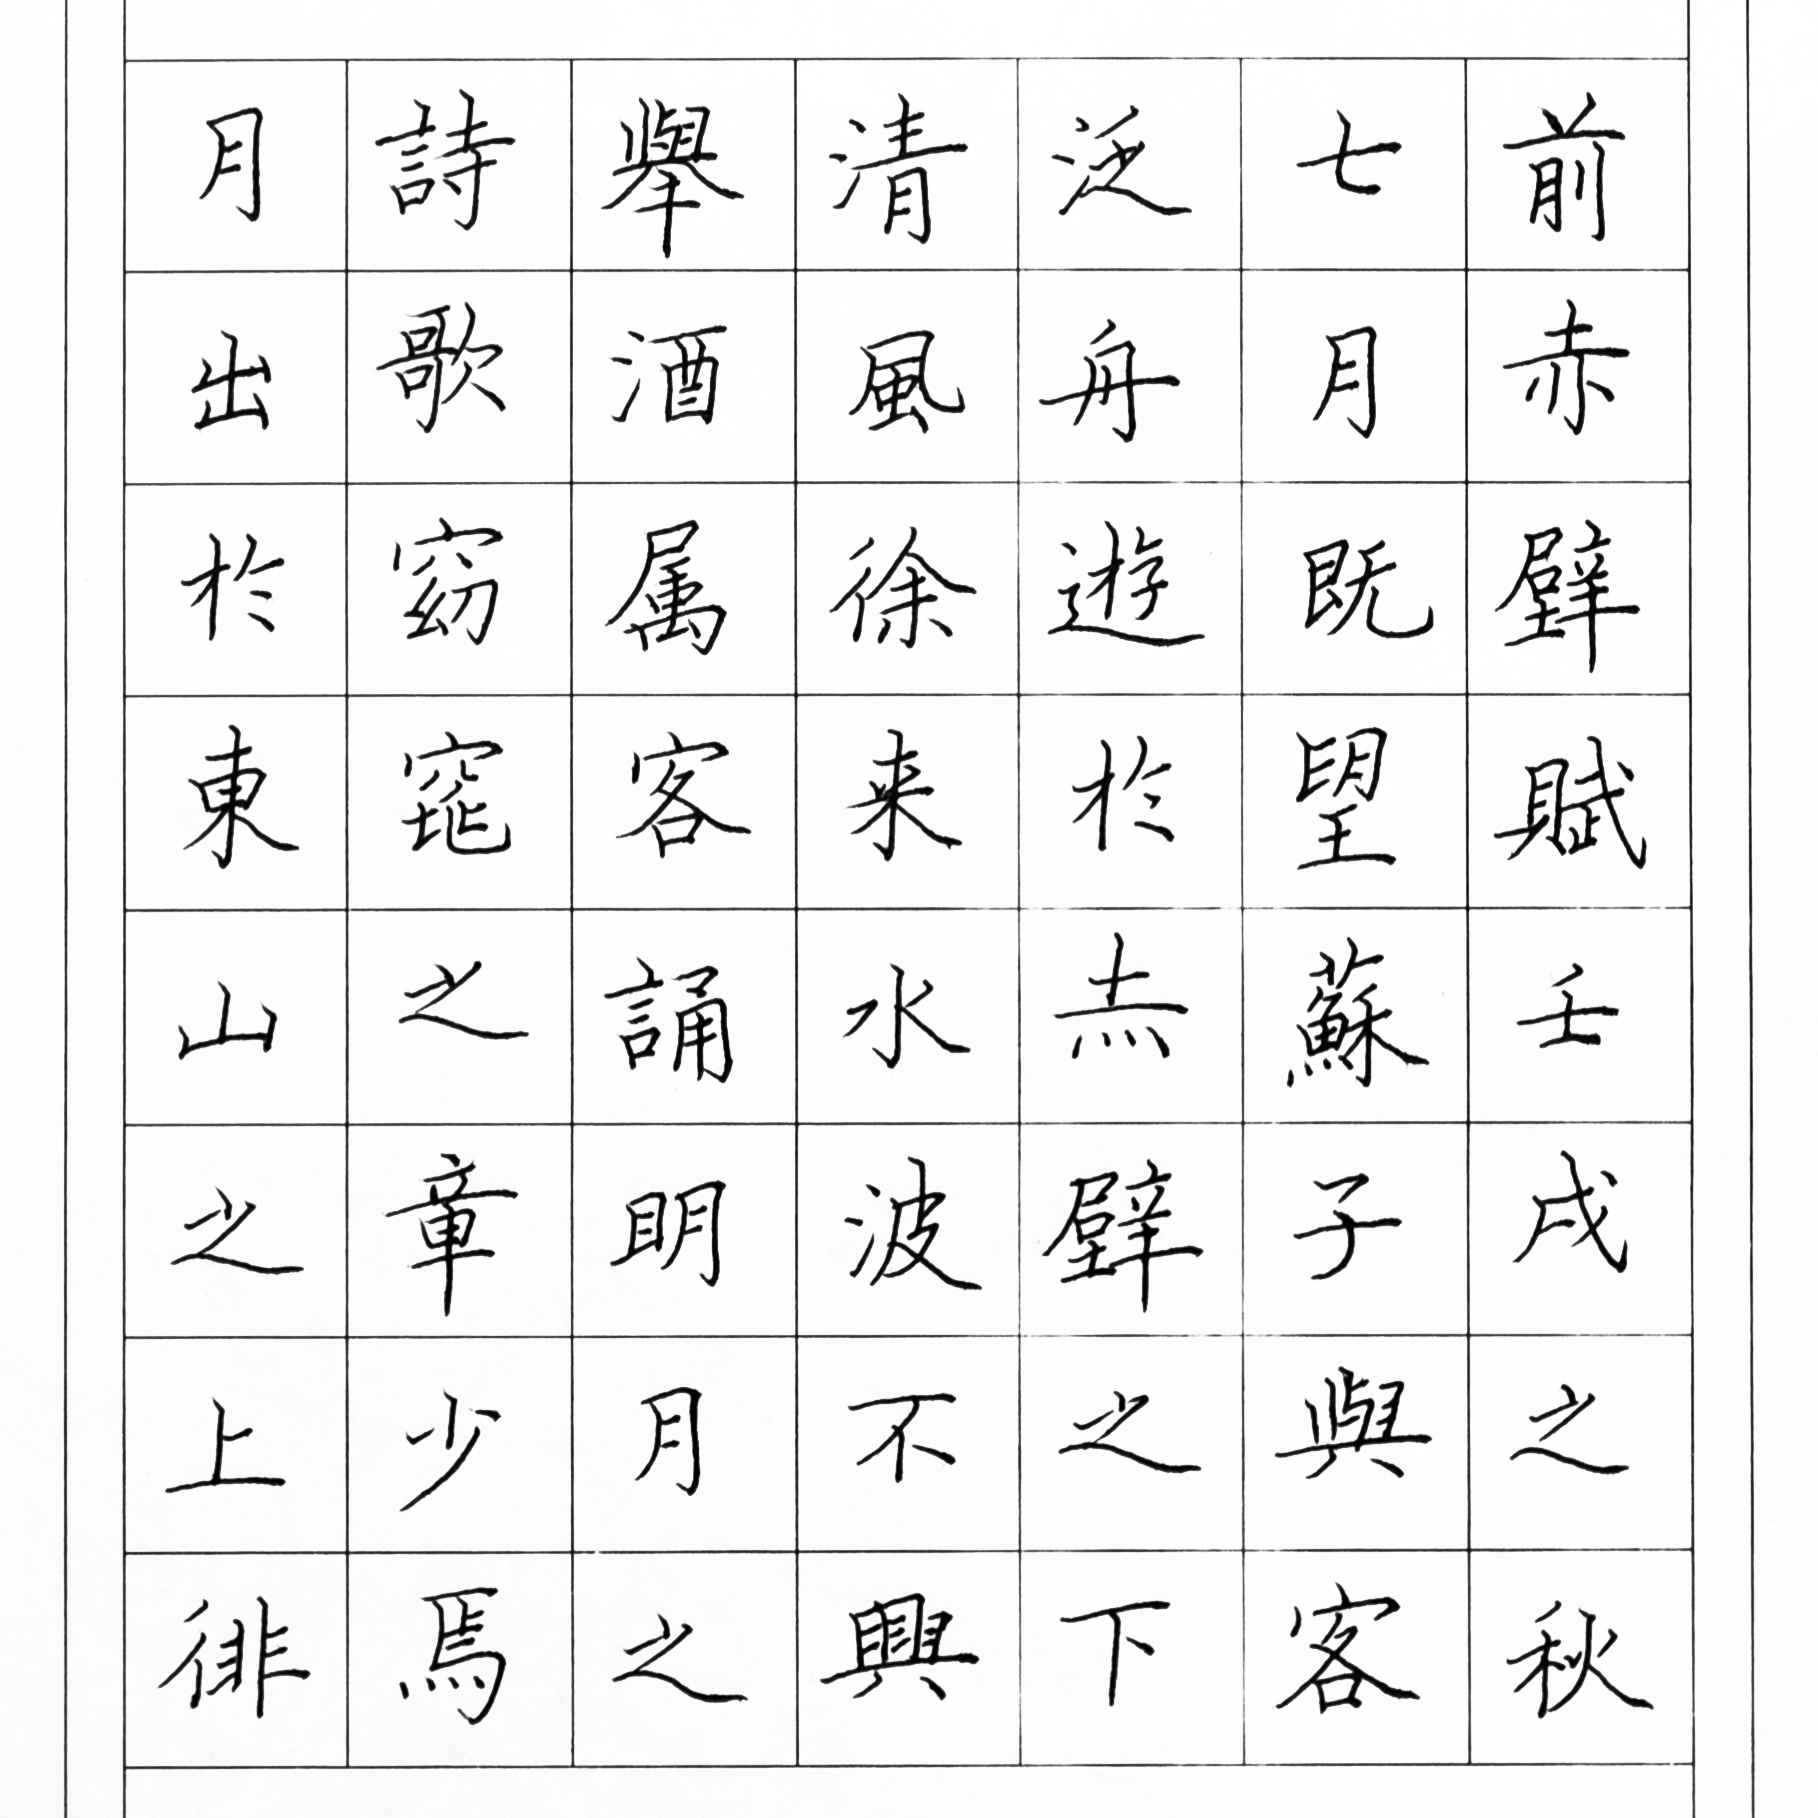 前赤壁賦壬戌之秋
七月既望蘇子與客
泛舟遊於赤壁之下
清風徐来水波不興
舉酒属客誦明月之
詩歌窈窕之章少焉
月出於東山之上徘